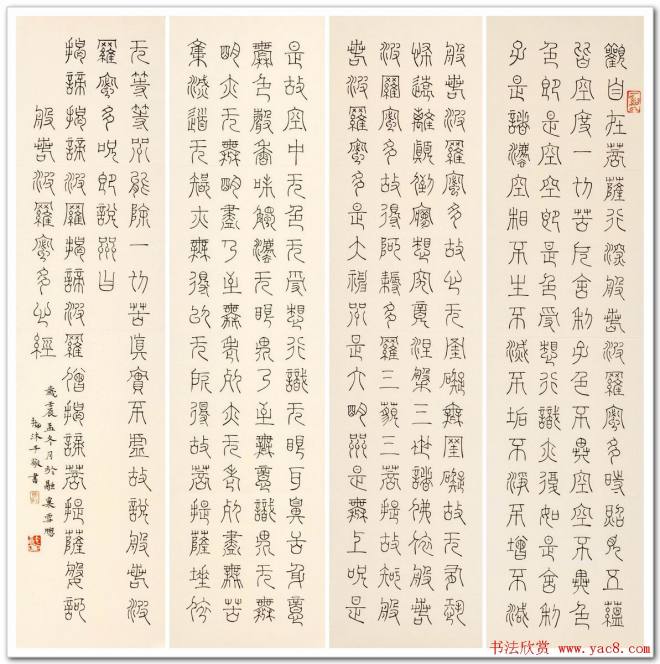 觀自在菩薩行深般若波羅蜜多時照見五蘊
皆空度一切苦厄舍利子色不異空空不異色
色即是空空即是色受想行識亦復如是舍利
子是諸法空相不生不滅不垢不淨不增不減
般若波羅蜜多故心无罣礙無罣礙故无有恐
怖遠離顛倒夢想究竟涅槃三世諸佛依般若
波羅蜜多故得阿耨多羅三藐三菩提故知般
若波羅蜜多是大神咒是大明咒是無上咒是
是故空中无色无受想行識无眼耳鼻舌身意
無色聲香味觸法无眼界乃至無意識界无無
明亦无無明盡乃至無老死亦无老死盡無苦
集滅道无智亦無得以无所得故菩提薩埵依
无等等咒能除一切苦真實不虛故說般若波
羅蜜多咒即說咒曰
揭諦揭諦波羅揭諦波羅僧揭諦菩提薩婆訶
般若波羅蜜多心經
孟冬月於
沐手敬書
书法欣赏
www.yac8.com